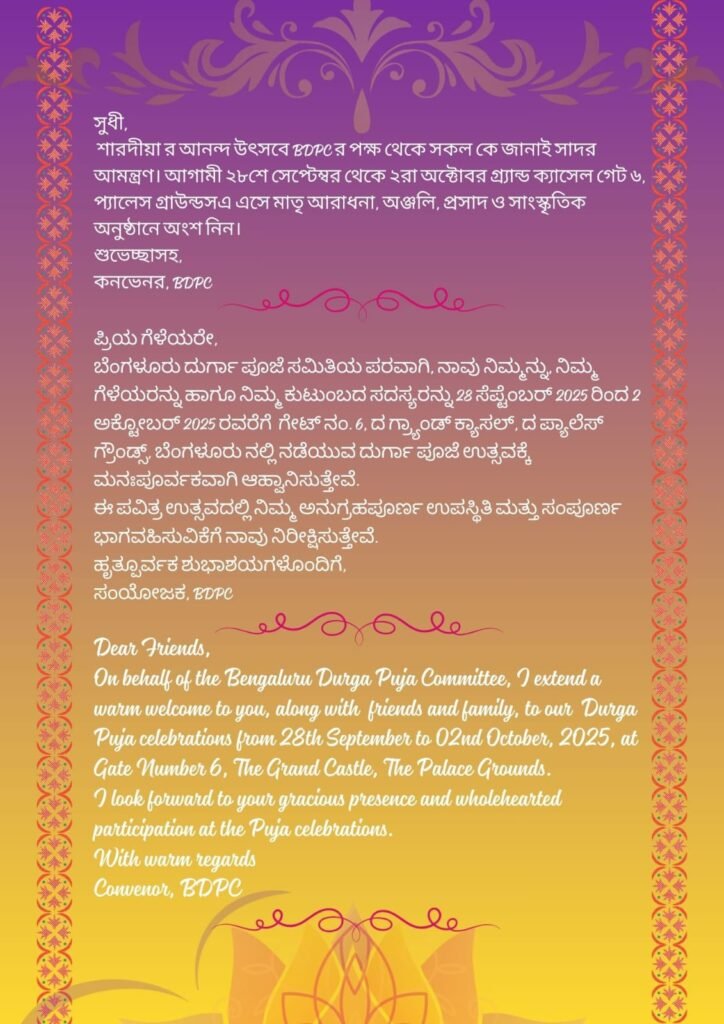 সুধী,
শারদীয়া র আনন্দ উৎসবে BDPC র পক্ষ থেকে সকল কে জানাই সাদর
আমন্ত্রণ। আগামী ২৮শে সেপ্টেম্বর থেকে ২রা অক্টোবর গ্র্যান্ড ক্যাসেল গেট ৬,
প্যালেস গ্রাউন্ডসএ এসে মাতৃ আরাধনা, অঞ্জলি, প্রসাদ ও সাংস্কৃতিক
অনুষ্ঠানে অংশ নিন।
শুভেচ্ছাসহ,
কনভেনর, BDPC
ಪ್ರಿಯ ಗೆಳೆಯರೇ,
ಬೆಂಗಳೂರು ದುರ್ಗಾ ಪೂಜೆ ಸಮಿತಿಯ ಪರವಾಗಿ, ನಾವು ನಿಮ್ಮನ್ನು, ನಿಮ್ಮ
ಗೆಳೆಯರನ್ನು ಹಾಗೂ ನಿಮ್ಮ ಕುಟುಂಬದ ಸದಸ್ಯರನ್ನು 28 ಸೆಪ್ಟೆಂಬರ್ 2025 ರಿಂದ 2
ಅಕ್ಟೋಬರ್ 2025 ರವರೆಗೆ ಗೇಟ್ ನಂ. 6, ದ ಗ್ರ್ಯಾಂಡ್ ಕ್ಯಾಸಲ್, ದ ಪ್ಯಾಲೆಸ್
ಗ್ರೌಂಡ್ಸ್, ಬೆಂಗಳೂರು ನಲ್ಲಿ ನಡೆಯುವ ದುರ್ಗಾ ಪೂಜೆ ಉತ್ಸವಕ್ಕೆ
ಮನಃಪೂರ್ವಕವಾಗಿ ಆಹ್ವಾನಿಸುತ್ತೇವೆ.
ಈ ಪವಿತ್ರ ಉತ್ಸವದಲ್ಲಿ ನಿಮ್ಮ ಅನುಗ್ರಹಪೂರ್ಣ ಉಪಸ್ಥಿತಿ ಮತ್ತು ಸಂಪೂರ್ಣ
ಭಾಗವಹಿಸುವಿಕೆಗೆ ನಾವು ನಿರೀಕ್ಷಿಸುತ್ತೇವೆ.
ಹೃತ್ಪೂರ್ವಕ ಶುಭಾಶಯಗಳೊಂದಿಗೆ,
ಸಂಯೋಜಕ, BDPC
Dear Friends,
On behalf of the Bengaluru Durga Puja Committee, I extend a
warm welcome to you, along with friends and family, to our Durga
Puja celebrations from 28th September to 02nd October, 2025, at
Gate Number 6, The Grand Castle, The Palace Grounds.
I look forward to your gracious presence and wholehearted
participation at the Puja celebrations.
With warm regards
Convenor, BDPC